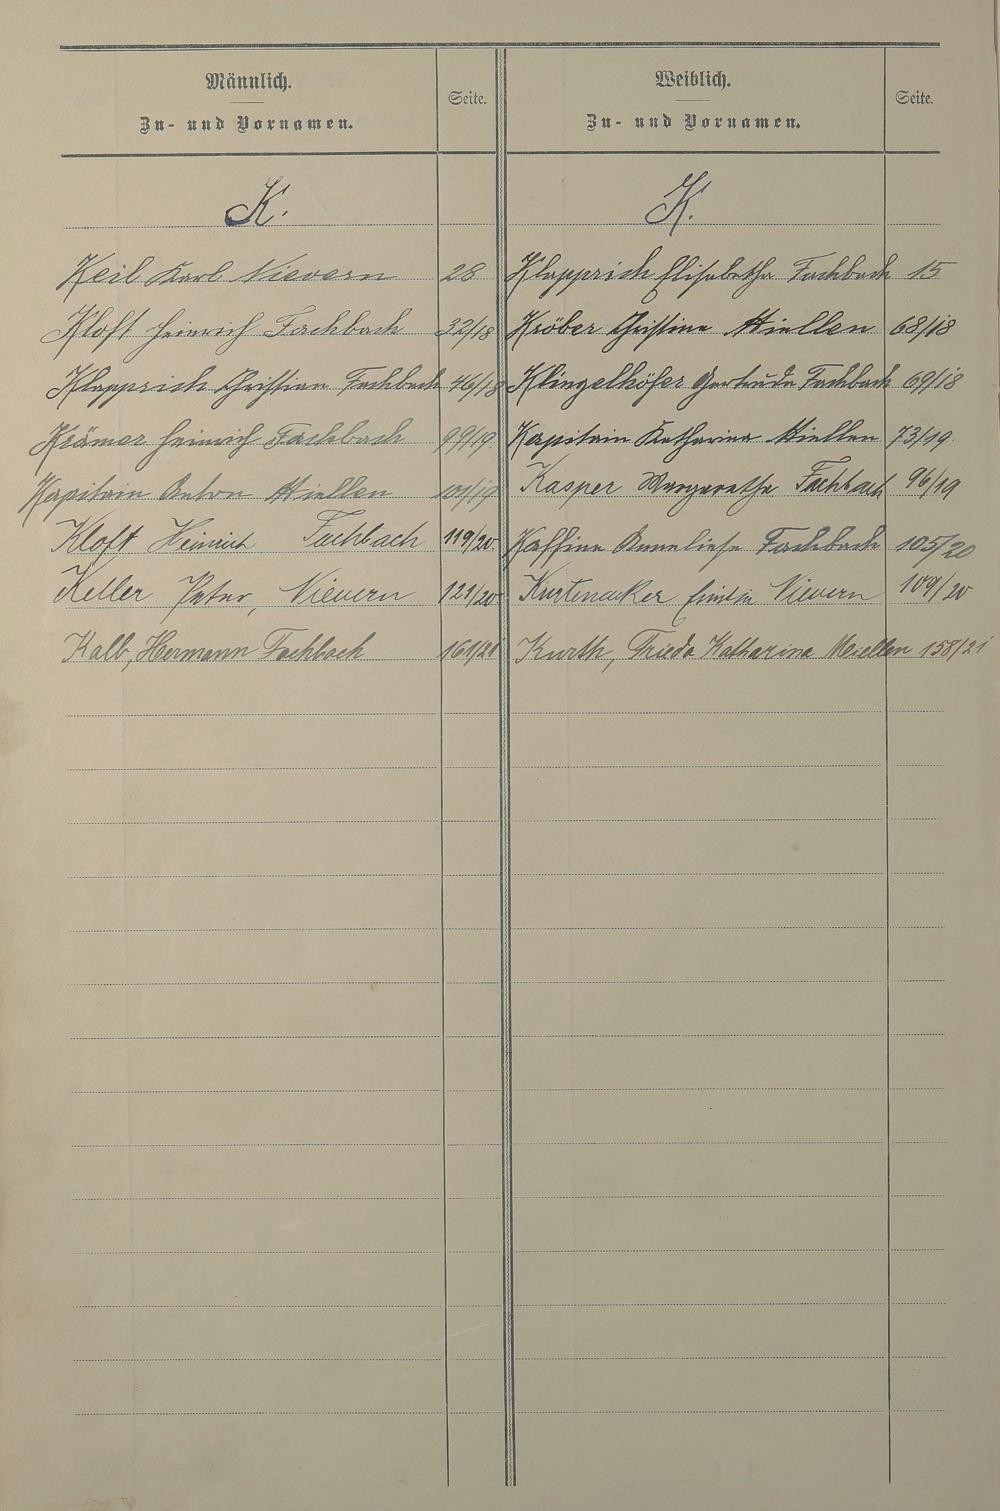 Männlich.
Zu- und Vornamen.
Seite.
Weiblich.
Zu- und Vornamen.
Seite.
K.
K.
Keil Karl Nievern 28
Klapprich Elisabetha Fachbach 15
Kloft Heinrich Fachbach 32/18
Kröber Christine Miellen 68/18
Klapprich Christian Fachbach 46/18
Klingelhöfer Gertrude Fachbach 69/18
Krämer Heinrich Fachbach 99/19
Kapitain Katharina Miellen 73/19
Kapitain Anton Miellen 101/19
Kasper Margaretha Fachbach 96/19
Kloft Heinrich Fachbach 119/20
Kaffine Anneliese Fachbach 105/20
Keller Peter, Nievern 121/20
Kurtenacker Nievern 109/20
Kalb, Hermann Fachbach 161/21
Kurth, Frieda Katharina Miellen 158/21